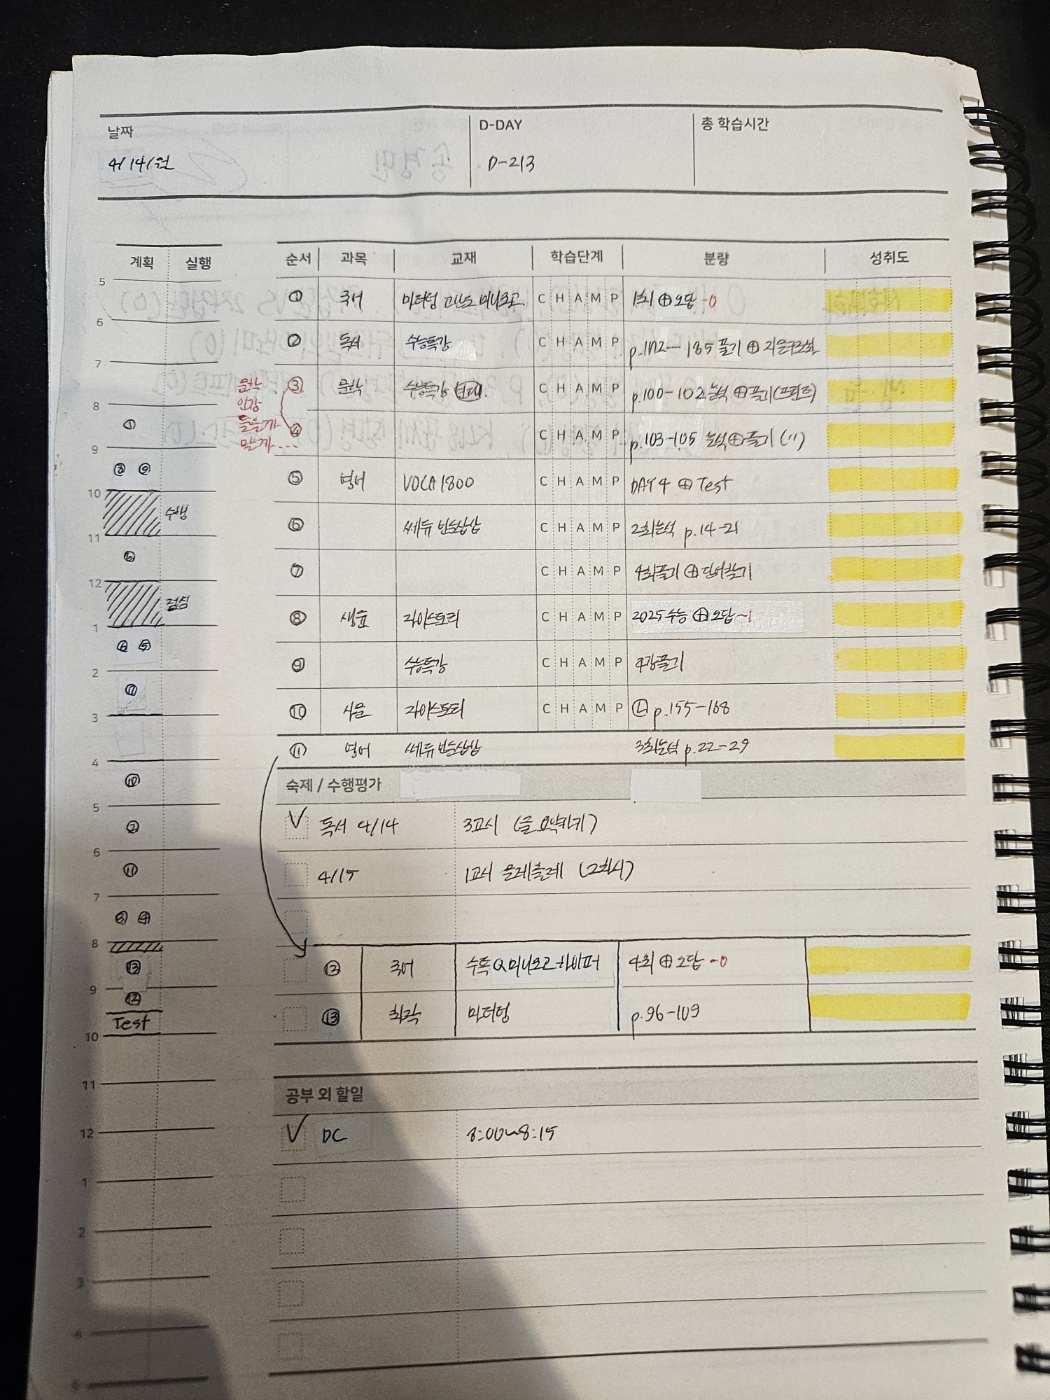 날짜 D-DAY 총 학습시간
4/14/월 D-213
계획 실행
순서 과목 교재 학습단계 분량 성취도
5
6
7
8
①
9
⑧ ⑨
10
수행
11
⑥
12
점심
1
④ ⑤
2
⑦
3
4
⑩
5
②
6
⑪
7
③ ④
8
⑬
9
⑫
Test
10
11
12
1
2
3
4
① 국어 마더텅 미니모고 C H A M P 1회 ⊕ 오답 -0
② 독서 수능특강 C H A M P p.182-185 풀기 ⊕ 지문구조화
문학
인강
듣는게
맞게...
③ 문학 수능특강 C H A M P p.100-102 분석 ⊕ 풀기(프린트)
④ C H A M P p.103-105 분석 ⊕ 풀기 (")
⑤ 영어 VOCA 1800 C H A M P DAY 4 ⊕ Test
⑥ 쎄듀 빈순삽함 C H A M P 2회분석 p.14-21
⑦ C H A M P 4회풀기 ⊕ 단어찾기
⑧ 생윤 자이스토리 C H A M P 2025 수능 ⊕ 오답 -1
⑨ 수능특강 C H A M P 4강풀기
⑩ 사문 자이스토리 C H A M P p.155-168
⑪ 영어 쎄듀 빈순삽함 3회분석 p.22-29
숙제 / 수행평가
독서 4/14 3교시 (글 요약하기)
4/15 1교시 문레플레 (2회시)
⑫ 국어 수특Q 미니모고 하이퍼 4회 ⊕ 오답 -0
⑬ 화작 마더텅 p.96-109
공부 외 할일
DC 8:00~8:15